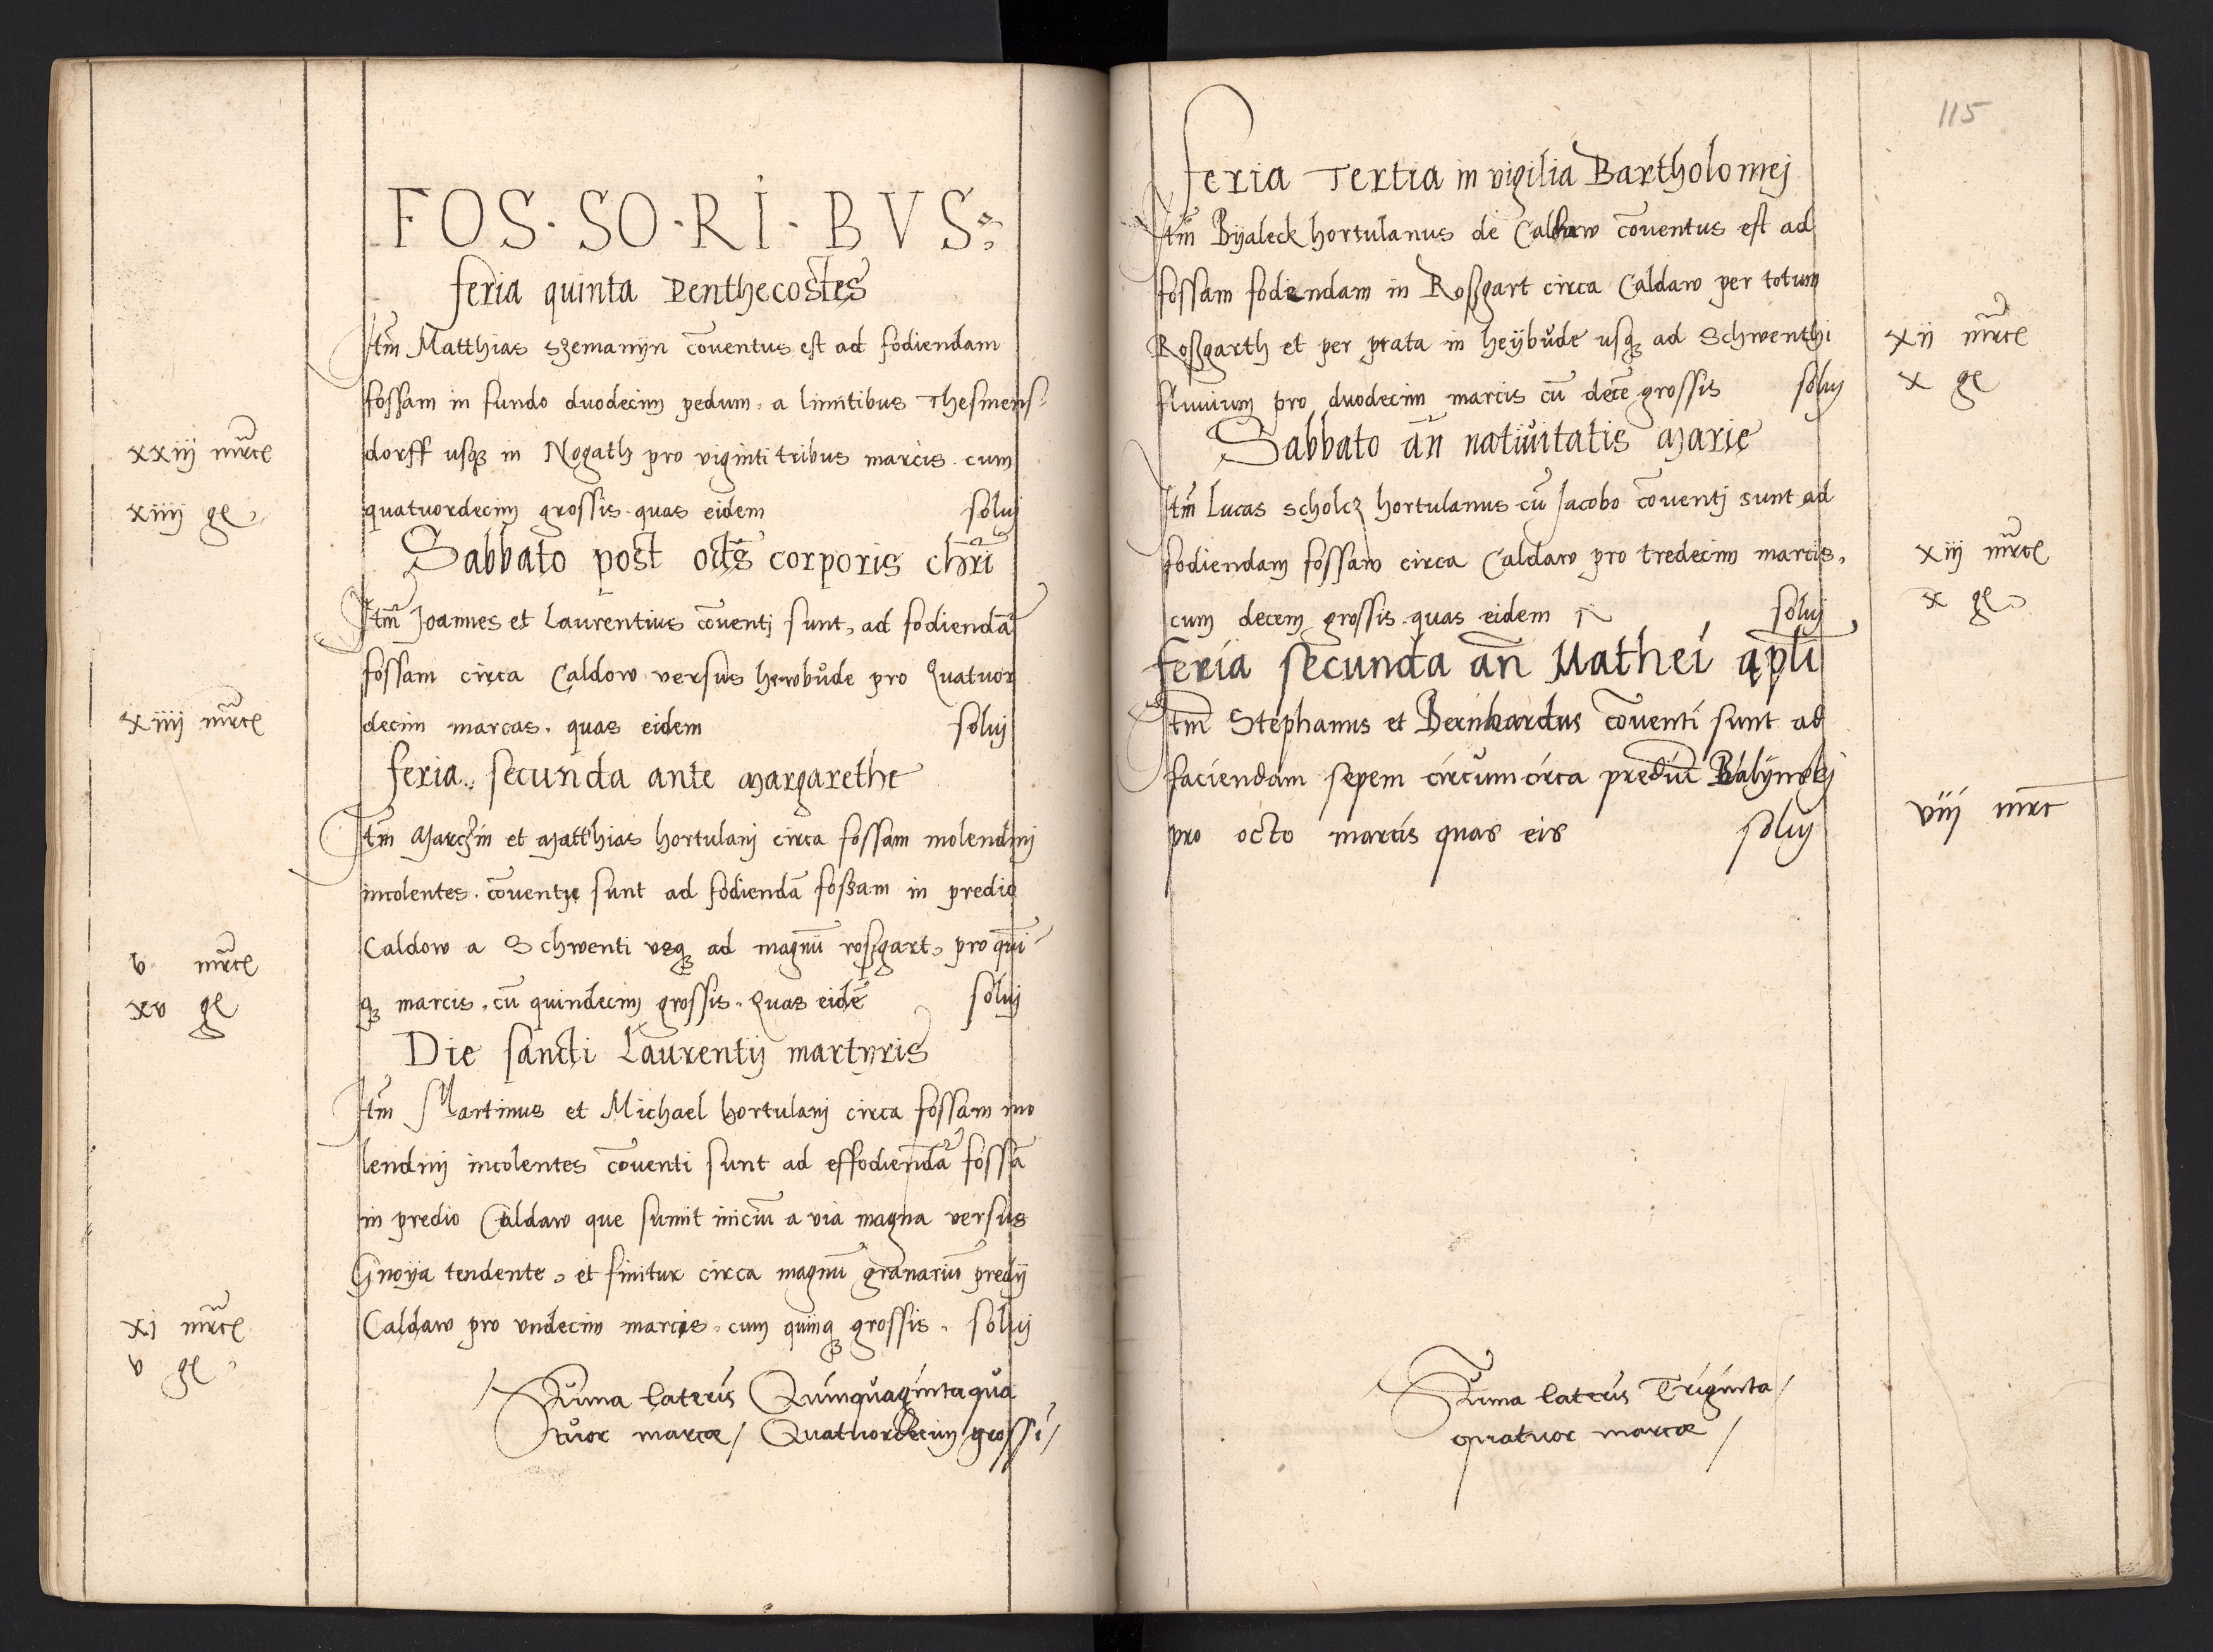 FOS·SO·RI·BVS
feria quinta Penthecostes
Itm̃ Matthias szemanÿn cōuentus est ad fodiendam
fossam in fundo duodecim pedum, a limitibus Thesmens-
xxiij mrc̃ dorff usqꝫ in Nogath pro viginti tribus marcis cum
xiiij gͤ quatuordecim grossis quas eidem soluj
Sabbato post octͣs corporis chrĩ
Itm̃ Joannes et Laurentius cōuentj sunt, ad fodiendā
fossam circa Caldow versus hewbůde pro Quatuor
xiiij mrc̃ decim marcas. quas eidem soluj
feria secunda ante Margarethe
Itm̃ Marczin et Matthias hortulanj circa fossam molendinj
incolentes. cōuentj sunt ad fodiendā fossam in predio
v mrc̃ Caldow a Schwenti vsqꝫ ad magnū roszgart, pro quĩ-
xv gͤ qꝫ marcis, cū quindecim grossis. Quas eidē soluj
Die sancti Laurentij martyris
Itm̃ Martinus et Michael hortulanj circa fossam mo
lendinj incolentes cōuenti sunt ad effodiendā fossā
in predio Caldaw que sumit iniciū a via magna versus
Gnoÿa tendente, et finitur circa magnū granariū predij
xj mrc̃ Caldaw pro vndecim marcis. cum quinqꝫ grossis. soluj
v gͤ
Sum̃a lateris Quinquaginta qua
tuor marcæ / Quatuordecim grossi /
115
feria Tertia in vigilia Bartholomej
Itm̃ Bÿaleck hortulanus de Caldaw cōuentus est ad
fossam fodiendam in Roszgart circa Caldaw per totum
Roszgarth et per prata in heÿbůde usqꝫ ad Schwenthi xij mrc̃
fluuium pro duodecim marcis cū decē grossis soluj x gͤ
Sabbato añ natiuitatis Marie
Itm̃ Lucas scholcz hortulanus cū Jacobo cōuentj sunt ad
fodiendam fossam circa Caldaw pro tredecim marcis, xiij mrc̃
cum decem grossis quas eidem soluj x gͤ
feria secunda añ Mathei apli
Itm̃ Stephanus et Bernhardus cōuenti sunt ad
faciendam sepem circumcirca prediū Balÿnskj
pro octo marcis quas eis soluj viij mrc̃
Sum̃a lateris Triginta /
quatuor marcæ /